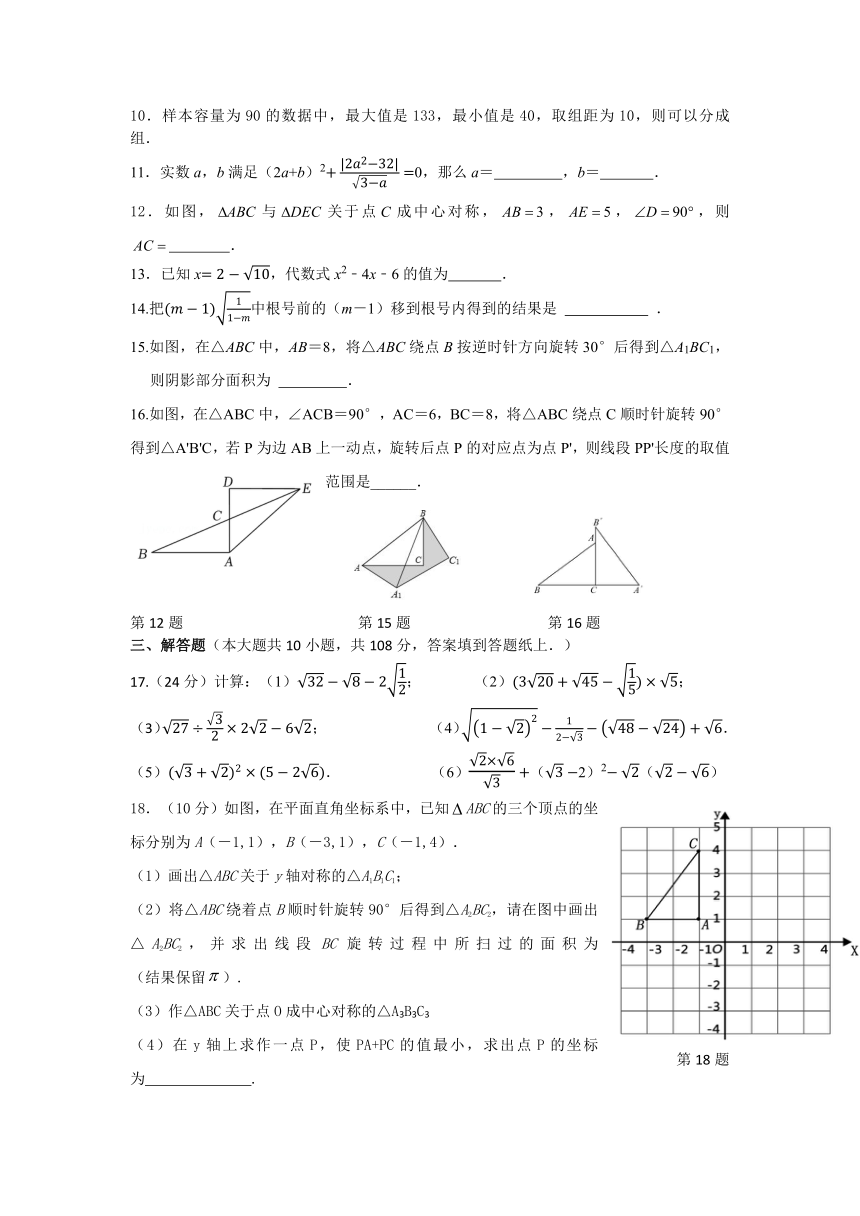 10．样本容量为 90 的数据中，最大值是 133，最小值是 40，取组距为 10，则可以分成
组．
11．实数 a，b 满足（2a+b）²+ |2a²−32|/√(3−a) =0，那么 a＝_________，b＝_______．
12．如图，ΔABC 与 ΔDEC 关于点 C 成中心对称，AB＝3，AE＝5，∠D＝90°，则
AC＝________．
13．已知 x＝2－√10，代数式 x²﹣4x﹣6 的值为_______．
14.把(m－1)√(1/(1−m))中根号前的（m－1）移到根号内得到的结果是 ___________ ．
15.如图，在△ABC 中，AB＝8，将△ABC 绕点 B 按逆时针方向旋转 30°后得到△A₁BC₁，
则阴影部分面积为 _________．
16.如图，在△ABC 中，∠ACB＝90°，AC＝6，BC＝8，将△ABC 绕点 C 顺时针旋转 90°
得到△A'B'C，若 P 为边 AB 上一动点，旋转后点 P 的对应点为点 P'，则线段 PP'长度的取值
范围是______．
D E C B A
B A C C₁ A₁
B' A B C A'
第 12 题 第 15 题 第 16 题
三、解答题（本大题共 10 小题，共 108 分，答案填到答题纸上．）
17.（24 分）计算：（1）√32 − √8 − 2√(1/2)； （2）(3√20 + √45 − √(1/5)) × √5；
（3）√27 ÷ √3/2 × 2√2 − 6√2； （4）√((1 − √2)²) − 1/(2−√3) − (√48 − √24) ÷ √6．
（5）(√3 + √2)² × (5 − 2√6)． （6）(√2×√6)/√3 +（√3 −2）²− √2（√2 − √6）
18．（10 分）如图，在平面直角坐标系中，已知 Δ ABC 的三个顶点的坐
标分别为 A（－1,1），B（－3,1），C（－1,4）．
（1）画出△ABC 关于 y 轴对称的△A₁B₁C₁；
（2）将△ABC 绕着点 B 顺时针旋转 90°后得到△A₂BC₂，请在图中画出
△ A₂BC₂ ，并求出线段 BC 旋转过程中所扫过的面积为
（结果保留 π ）．
（3）作△ABC 关于点 O 成中心对称的△A₃B₃C₃
（4）在 y 轴上求作一点 P，使 PA+PC 的值最小，求出点 P 的坐标
为______________．
y 5 4 3 2 1 C B A
-4 -3 -2 -1 O 1 2 3 4 X
-1 -2 -3 -4
第 18 题